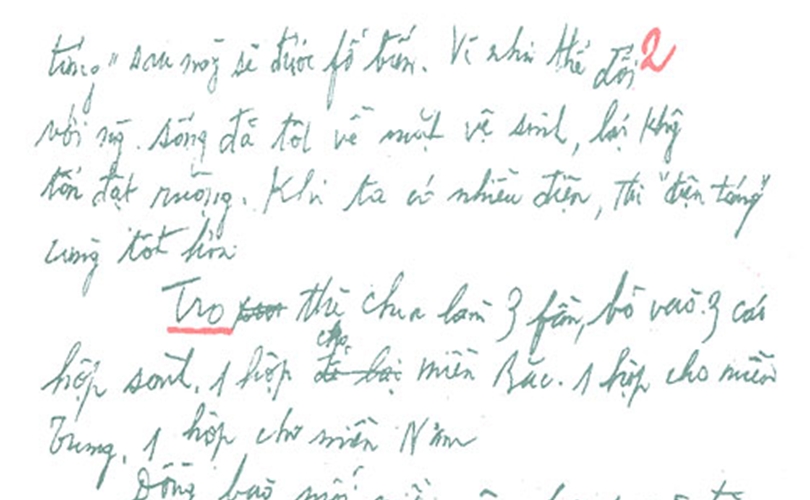 táng" sau này sẽ được fổ biến. Vì như thế đối 2
với ng. sống đã tốt về mặt vệ sinh, lại khg
tốn đất ruộng. Khi ta có nhiều điện, thì "điện táng"
càng tốt hơn.
Tro thì chia làm 3 fần, bỏ vào 3 cái
hộp sành. 1 hộp cho miền Bắc. 1 hộp cho miền
Trung, 1 hộp cho miền Nam
Đồng bào mỗi miền